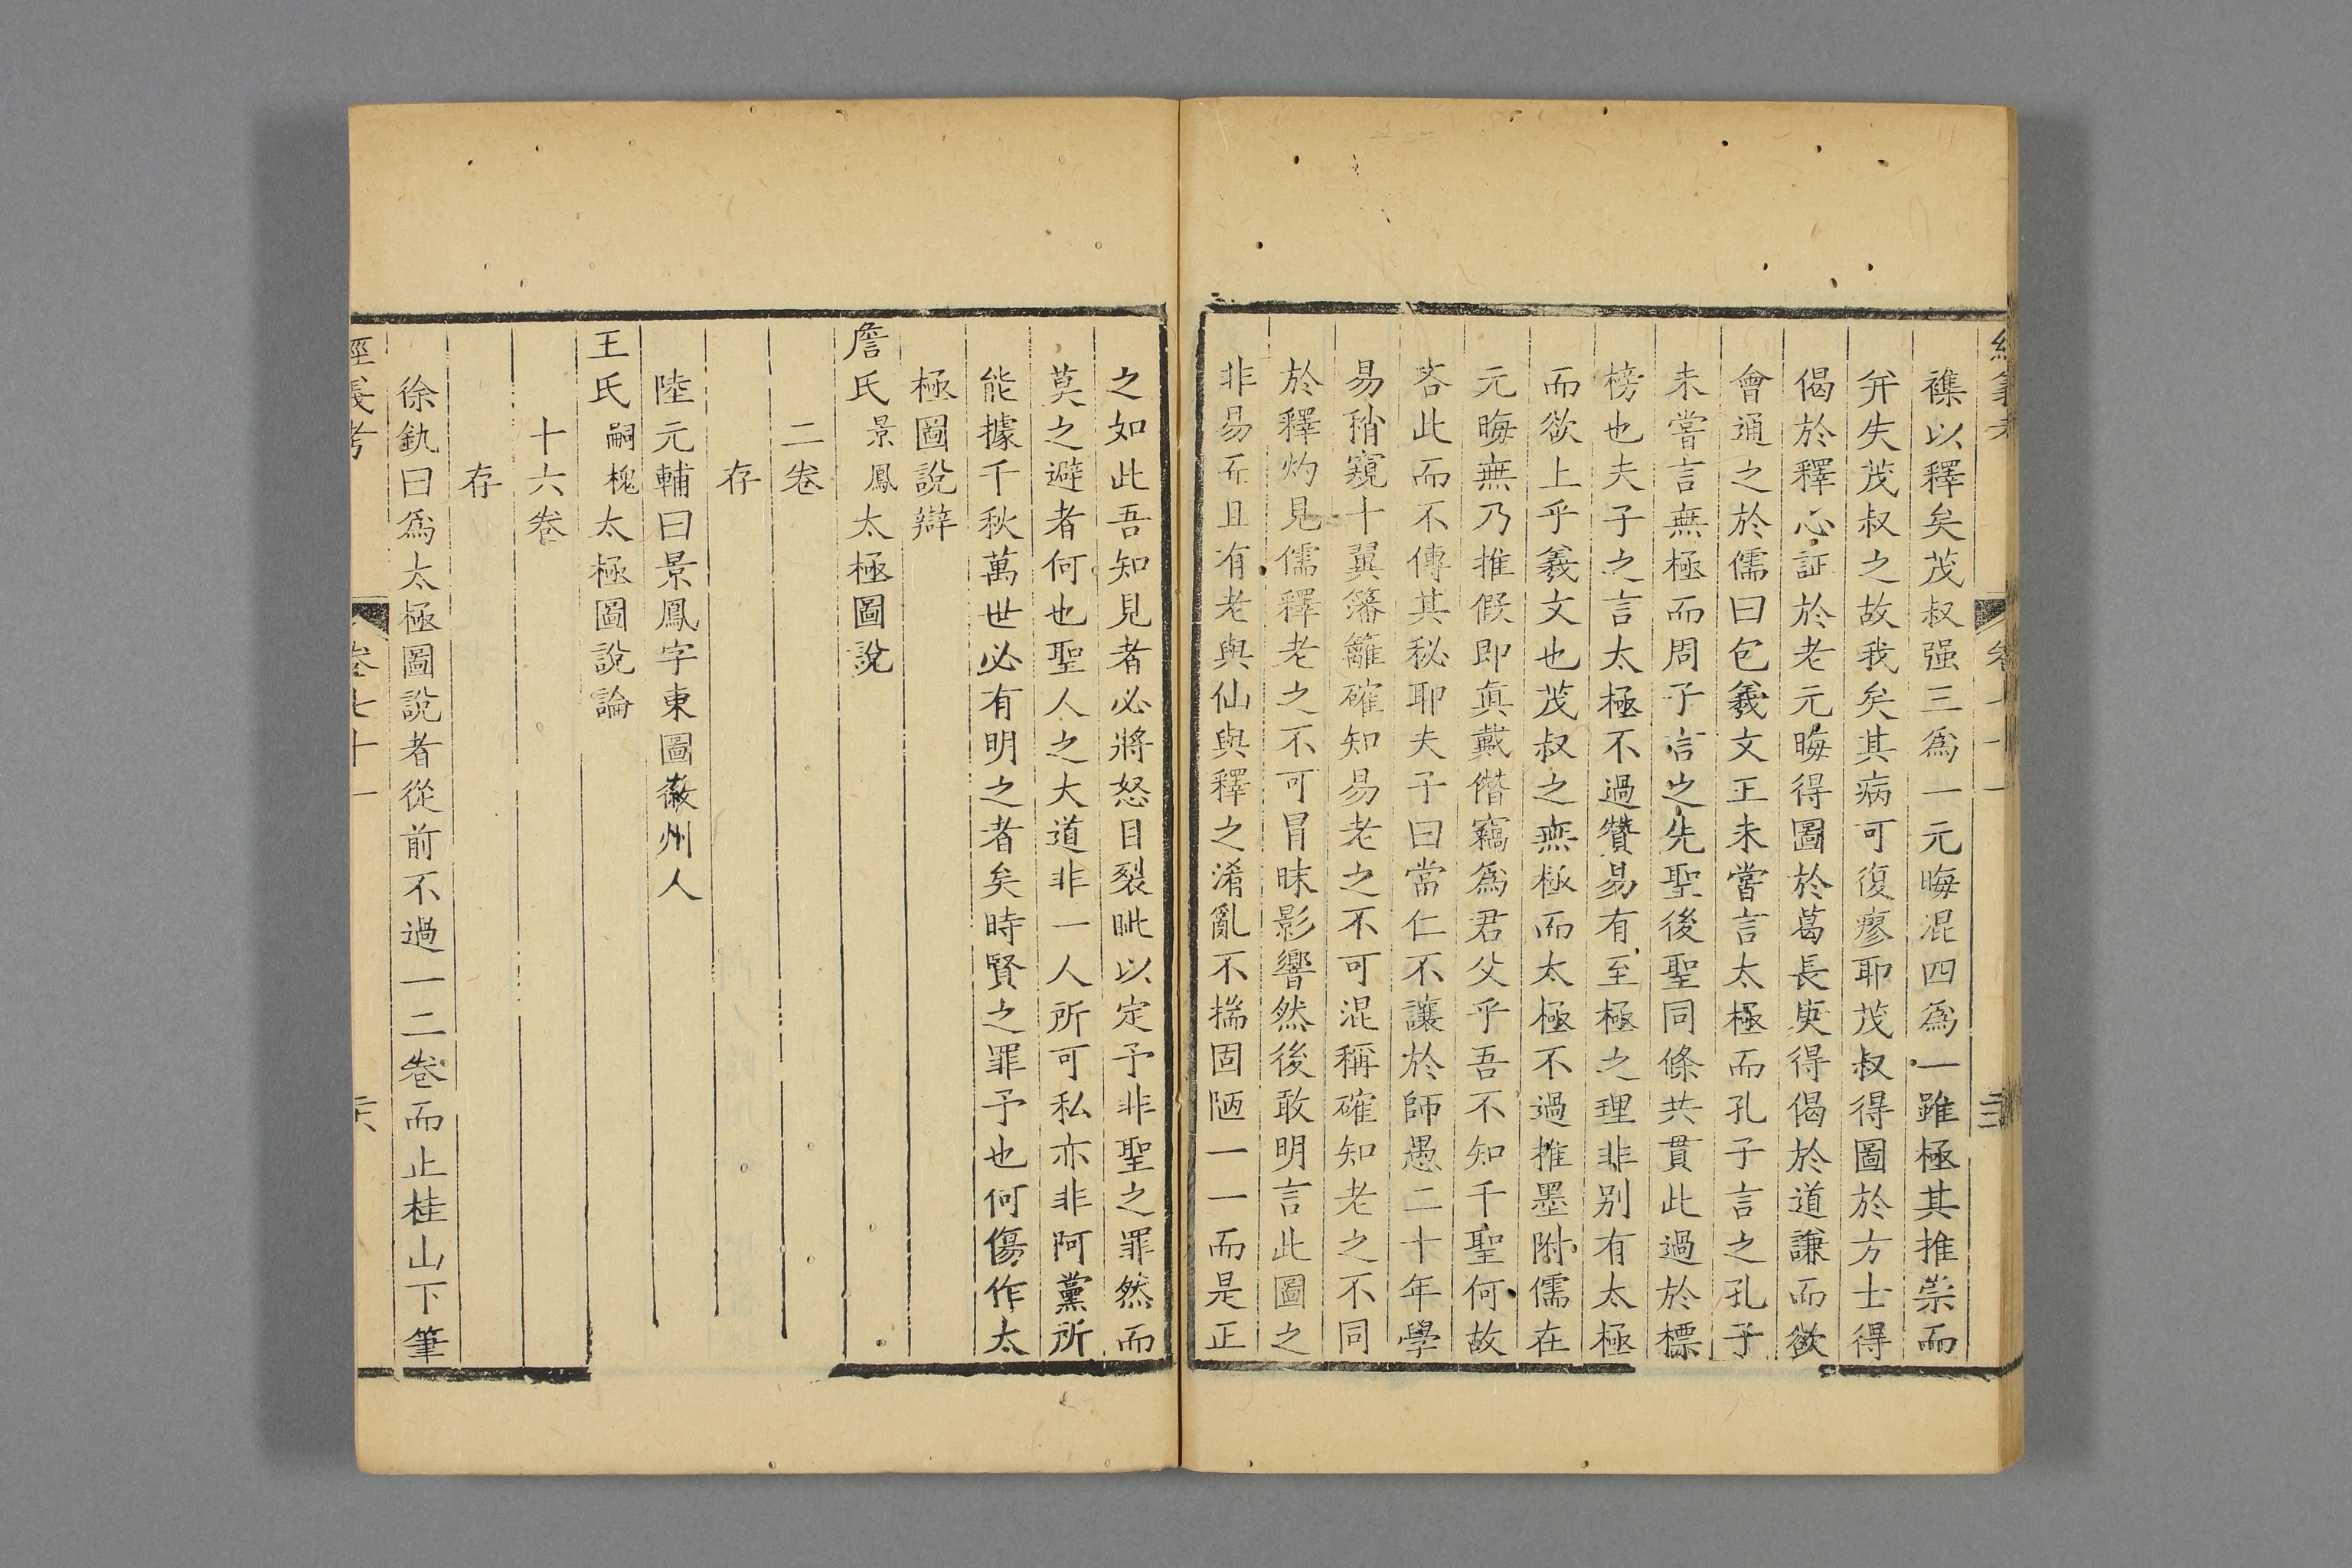 經義考 卷七十一
襍以釋矣茂叔强三爲一元晦混四爲一雖極其推崇而
弁失茂叔之故我矣其病可復瘳耶茂叔得圖於方士得
偈於釋心証於老元晦得圖於葛長庚得偈於道謙而欲
會通之於儒曰包羲文王未嘗言太極而孔子言之孔子
未嘗言無極而周子言之先聖後聖同條共貫此過於標
榜也夫子之言太極不過贊易有至極之理非别有太極
而欲上乎羲文也茂叔之無極而太極不過推墨附儒在
元晦無乃推假即眞戴僭竊爲君父乎吾不知千聖何故
吝此而不傳其秘耶夫子曰當仁不讓於師愚二十年學
易稍窺十翼籓籬確知易老之不可混稱確知老之不同
於釋灼見儒釋老之不可冒昧影響然後敢明言此圖之
非易而且有老與仙與釋之淆亂不揣固陋一一而是正
之如此吾知見者必將怒目裂眦以定予非聖之罪然而
莫之避者何也聖人之大道非一人所可私亦非阿黨所
能據千秋萬世必有明之者矣時賢之罪予也何傷作太
極圖說辯
詹氏景鳳太極圖說
二卷
存
陸元輔曰景鳳字東圖徽州人
王氏嗣槐太極圖說論
十六卷
存
徐釚曰爲太極圖說者從前不過一二卷而止桂山下筆
經義考 卷七十一